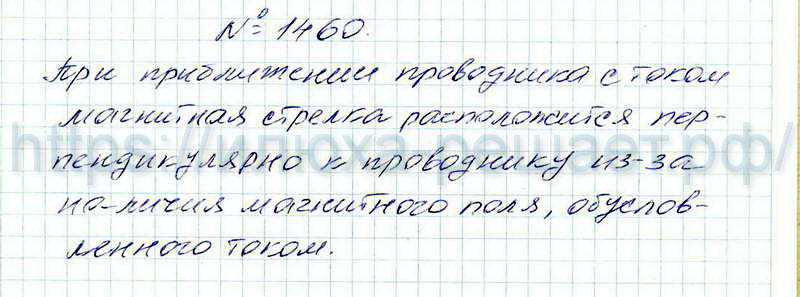 № 1460.
При приближении проводника с током
магнитная стрелка расположится пер-
пендикулярно к проводнику из-за
на-личия магнитного поля, обуслов-
ленного током.